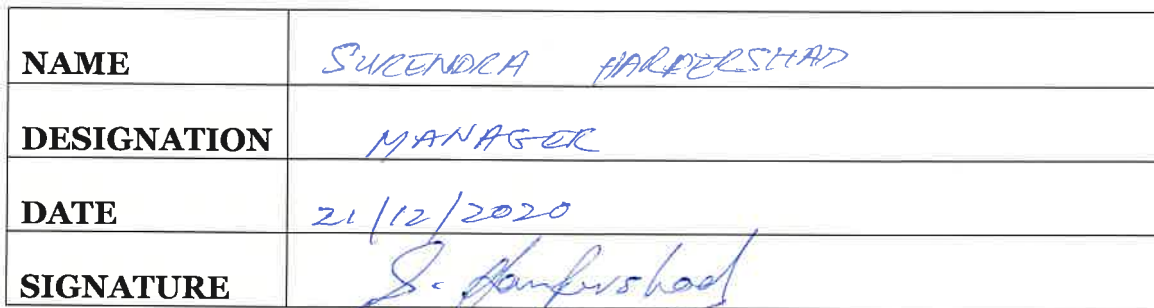 NAME SURENDRA HARPERSHAD
DESIGNATION MANAGER
DATE 21/12/2020
SIGNATURE S. Harpershad